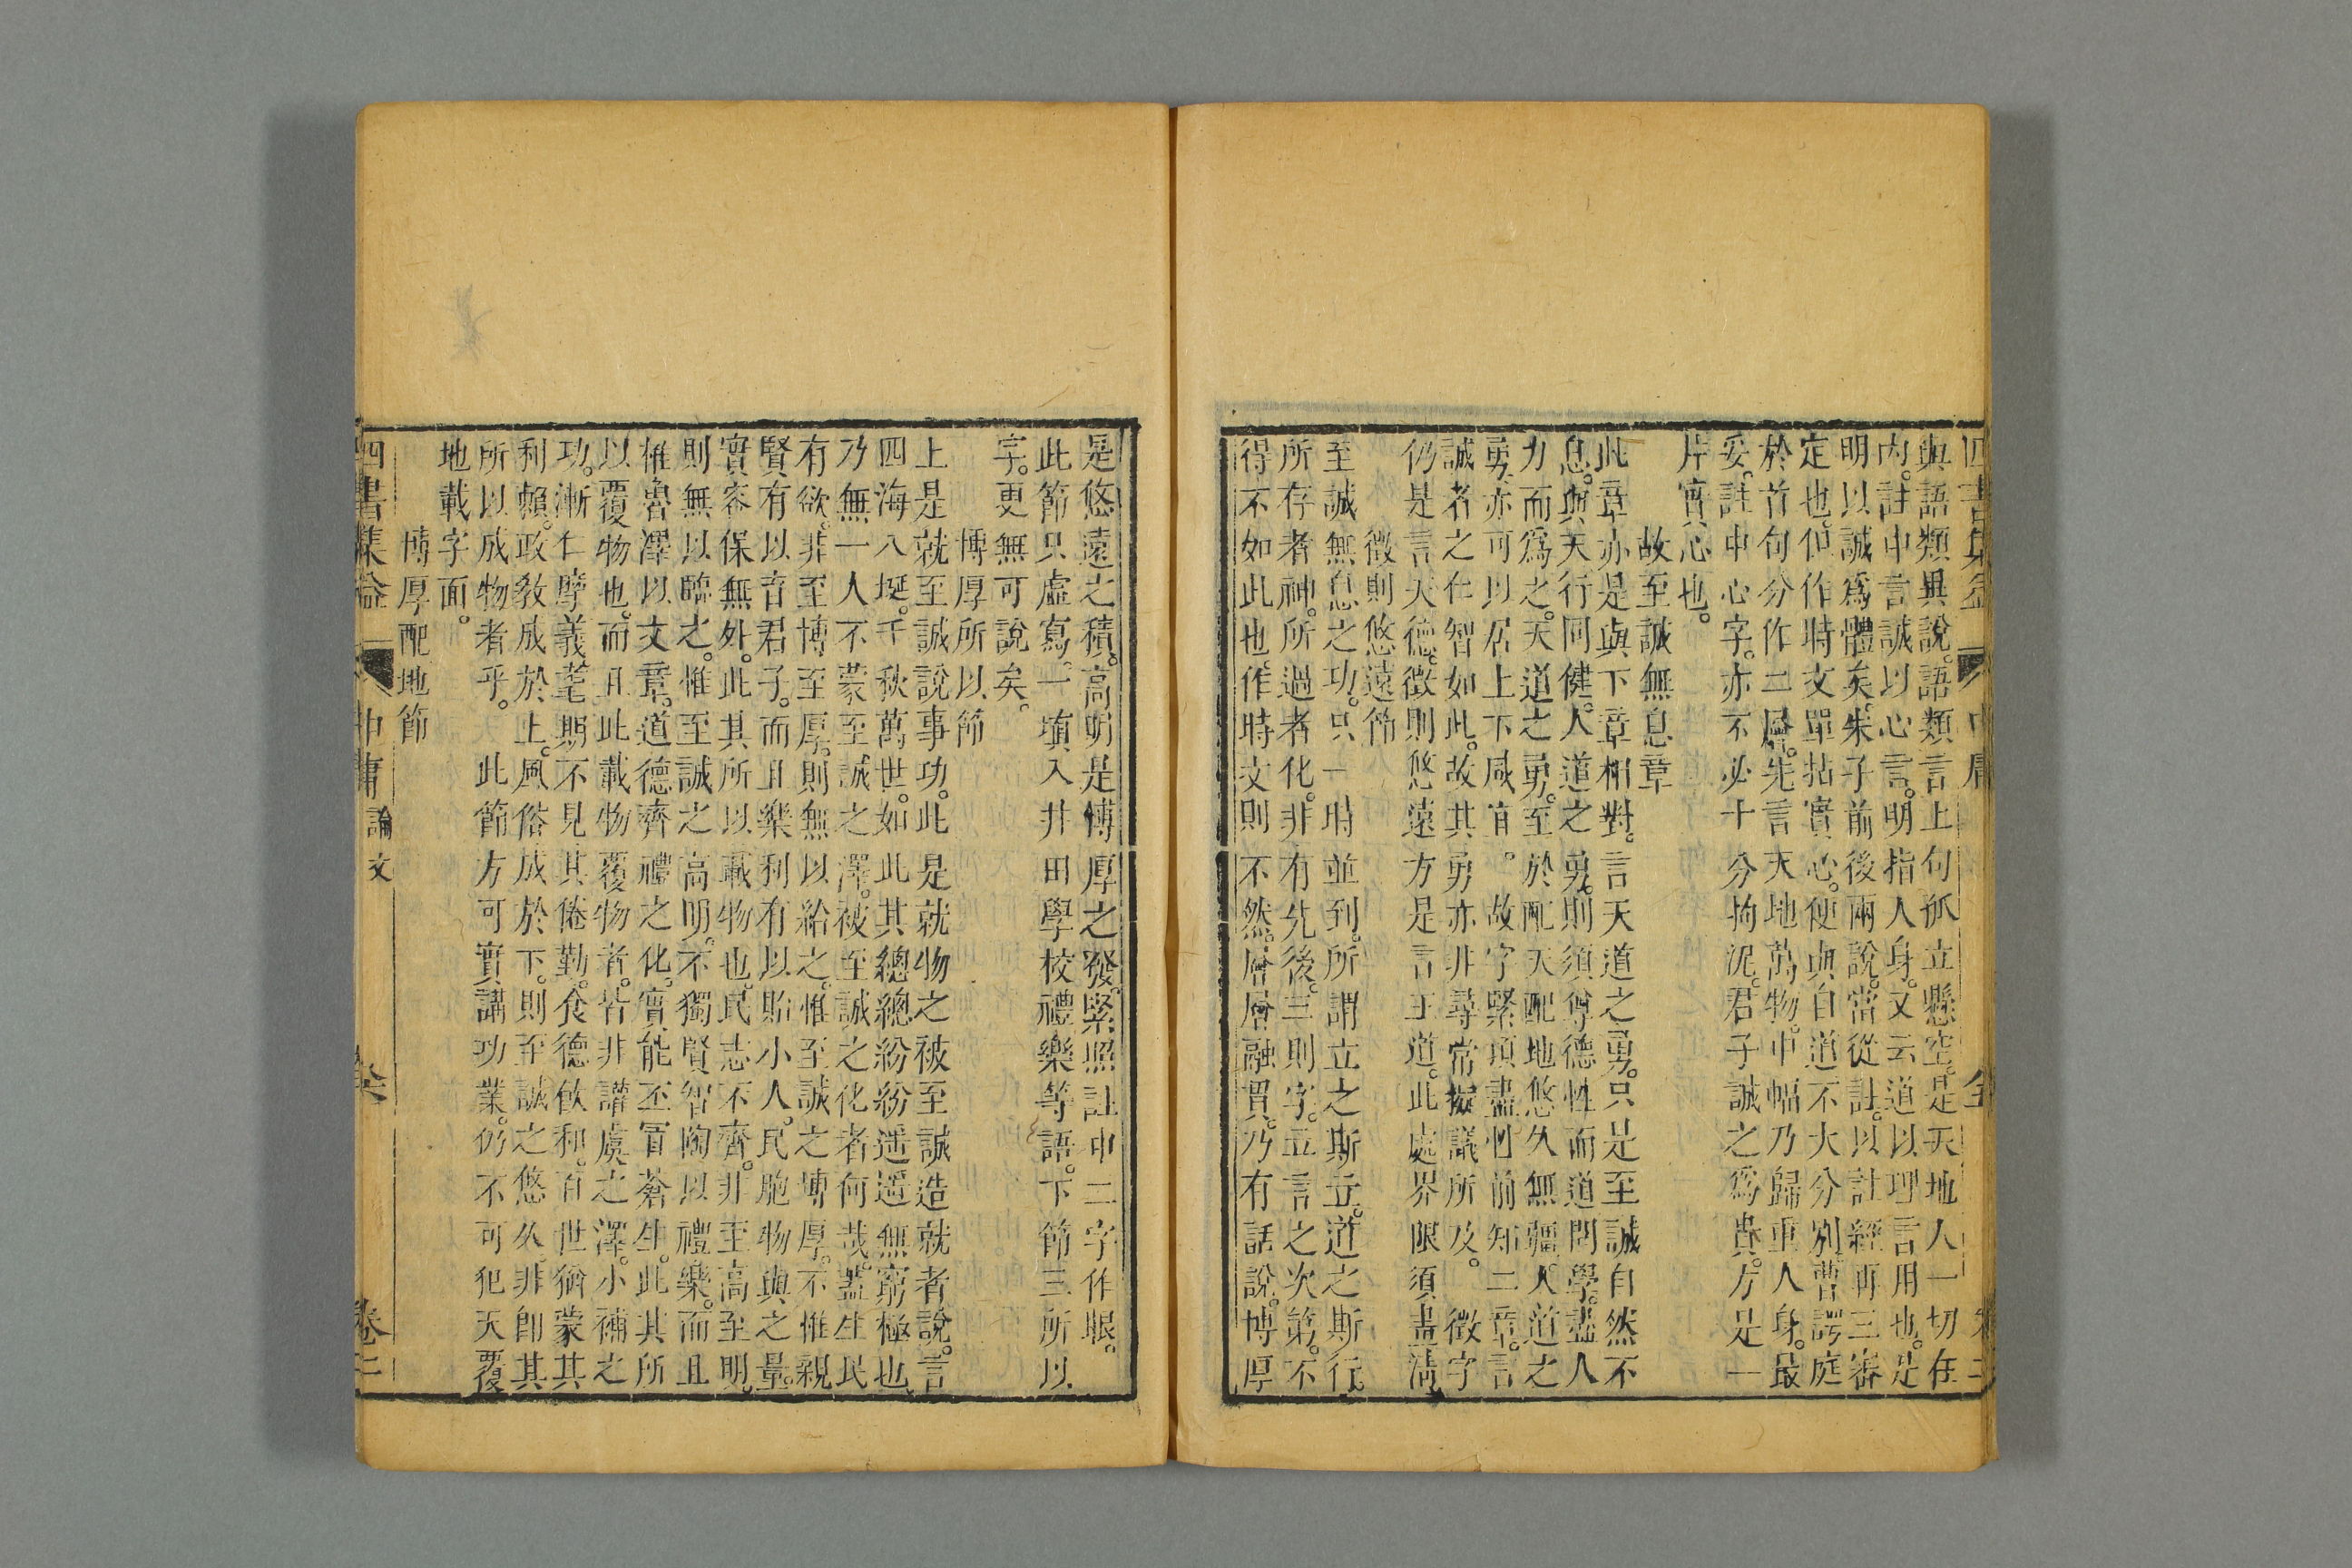 與語類異說。語類言上句孤立懸空。是天地人一切在
內。註中言誠以心言。明指人身。又云道以理言用也。是
明以誠爲體矣。朱子前後兩說。當從註。以註經再三審
定也。但作時文單拈實心。便與自道不大分別。曹諤庭
於首句分作二層。先言天地萬物。中幅乃歸重人身。最
妥。註中心字。亦不必十分拘泥。君子誠之爲貴。方是一
片實心也。
故至誠無息章
此章亦是與下章相對。言天道之勇。只是至誠自然不
息。與天行同健。人道之勇。則須尊德性而道問學。盡人
力而爲之。天道之勇。至於配天配地悠久無疆。人道之
勇。亦可以居上下咸宜。故字緊頂盡性前知二章。言
誠者之仁智如此。故其勇亦非尋常擬議所及。徵字
仍是言天德。徵則悠遠方是言王道。此處界限須畫淸
徵則悠遠節
至誠無息之功。只一時並到。所謂立之斯立。道之斯行。
所存者神。所過者化。非有先後。三則字。立言之次第。不
得不如此也。作時文則不然。層層融貫。乃有話說。博厚
是悠遠之積。高明是博厚之發。緊照註中二字作眼。
此節只虛寫。一填入井田學校禮樂等語。下節三所以
字。更無可說矣。
博厚所以節
上是就至誠說事功。此是就物之被至誠造就者說。言
四海八埏。千秋萬世。如此其總總紛紛遥遥無窮極也。
乃無一人不蒙至誠之澤。被至誠之化者何哉。蓋生民
有欲。非至博至厚。則無以給之。惟至誠之博厚。不惟親
賢有以育君子。而且樂利有以貽小人。民胞物與之量。
實容保無外。此其所以載物也。民志不齊。非至高至明。
則無以臨之。惟至誠之高明。不獨賢智陶以禮樂。而且
椎魯澤以文章。道德齊禮之化。實能丕冒蒼生。此其所
以覆物也。而且此載物覆物者。皆非讙虞之澤。小補之
功。漸仁摩義耄期不見其倦勤。食德飲和。百世猶蒙其
利賴。政敎成於上。風俗成於下。則至誠之悠久。非卽其
所以成物者乎。此節方可實講功業。仍不可犯天覆
地載字面。
博厚配地節
四書集益 中庸 論文 卷二